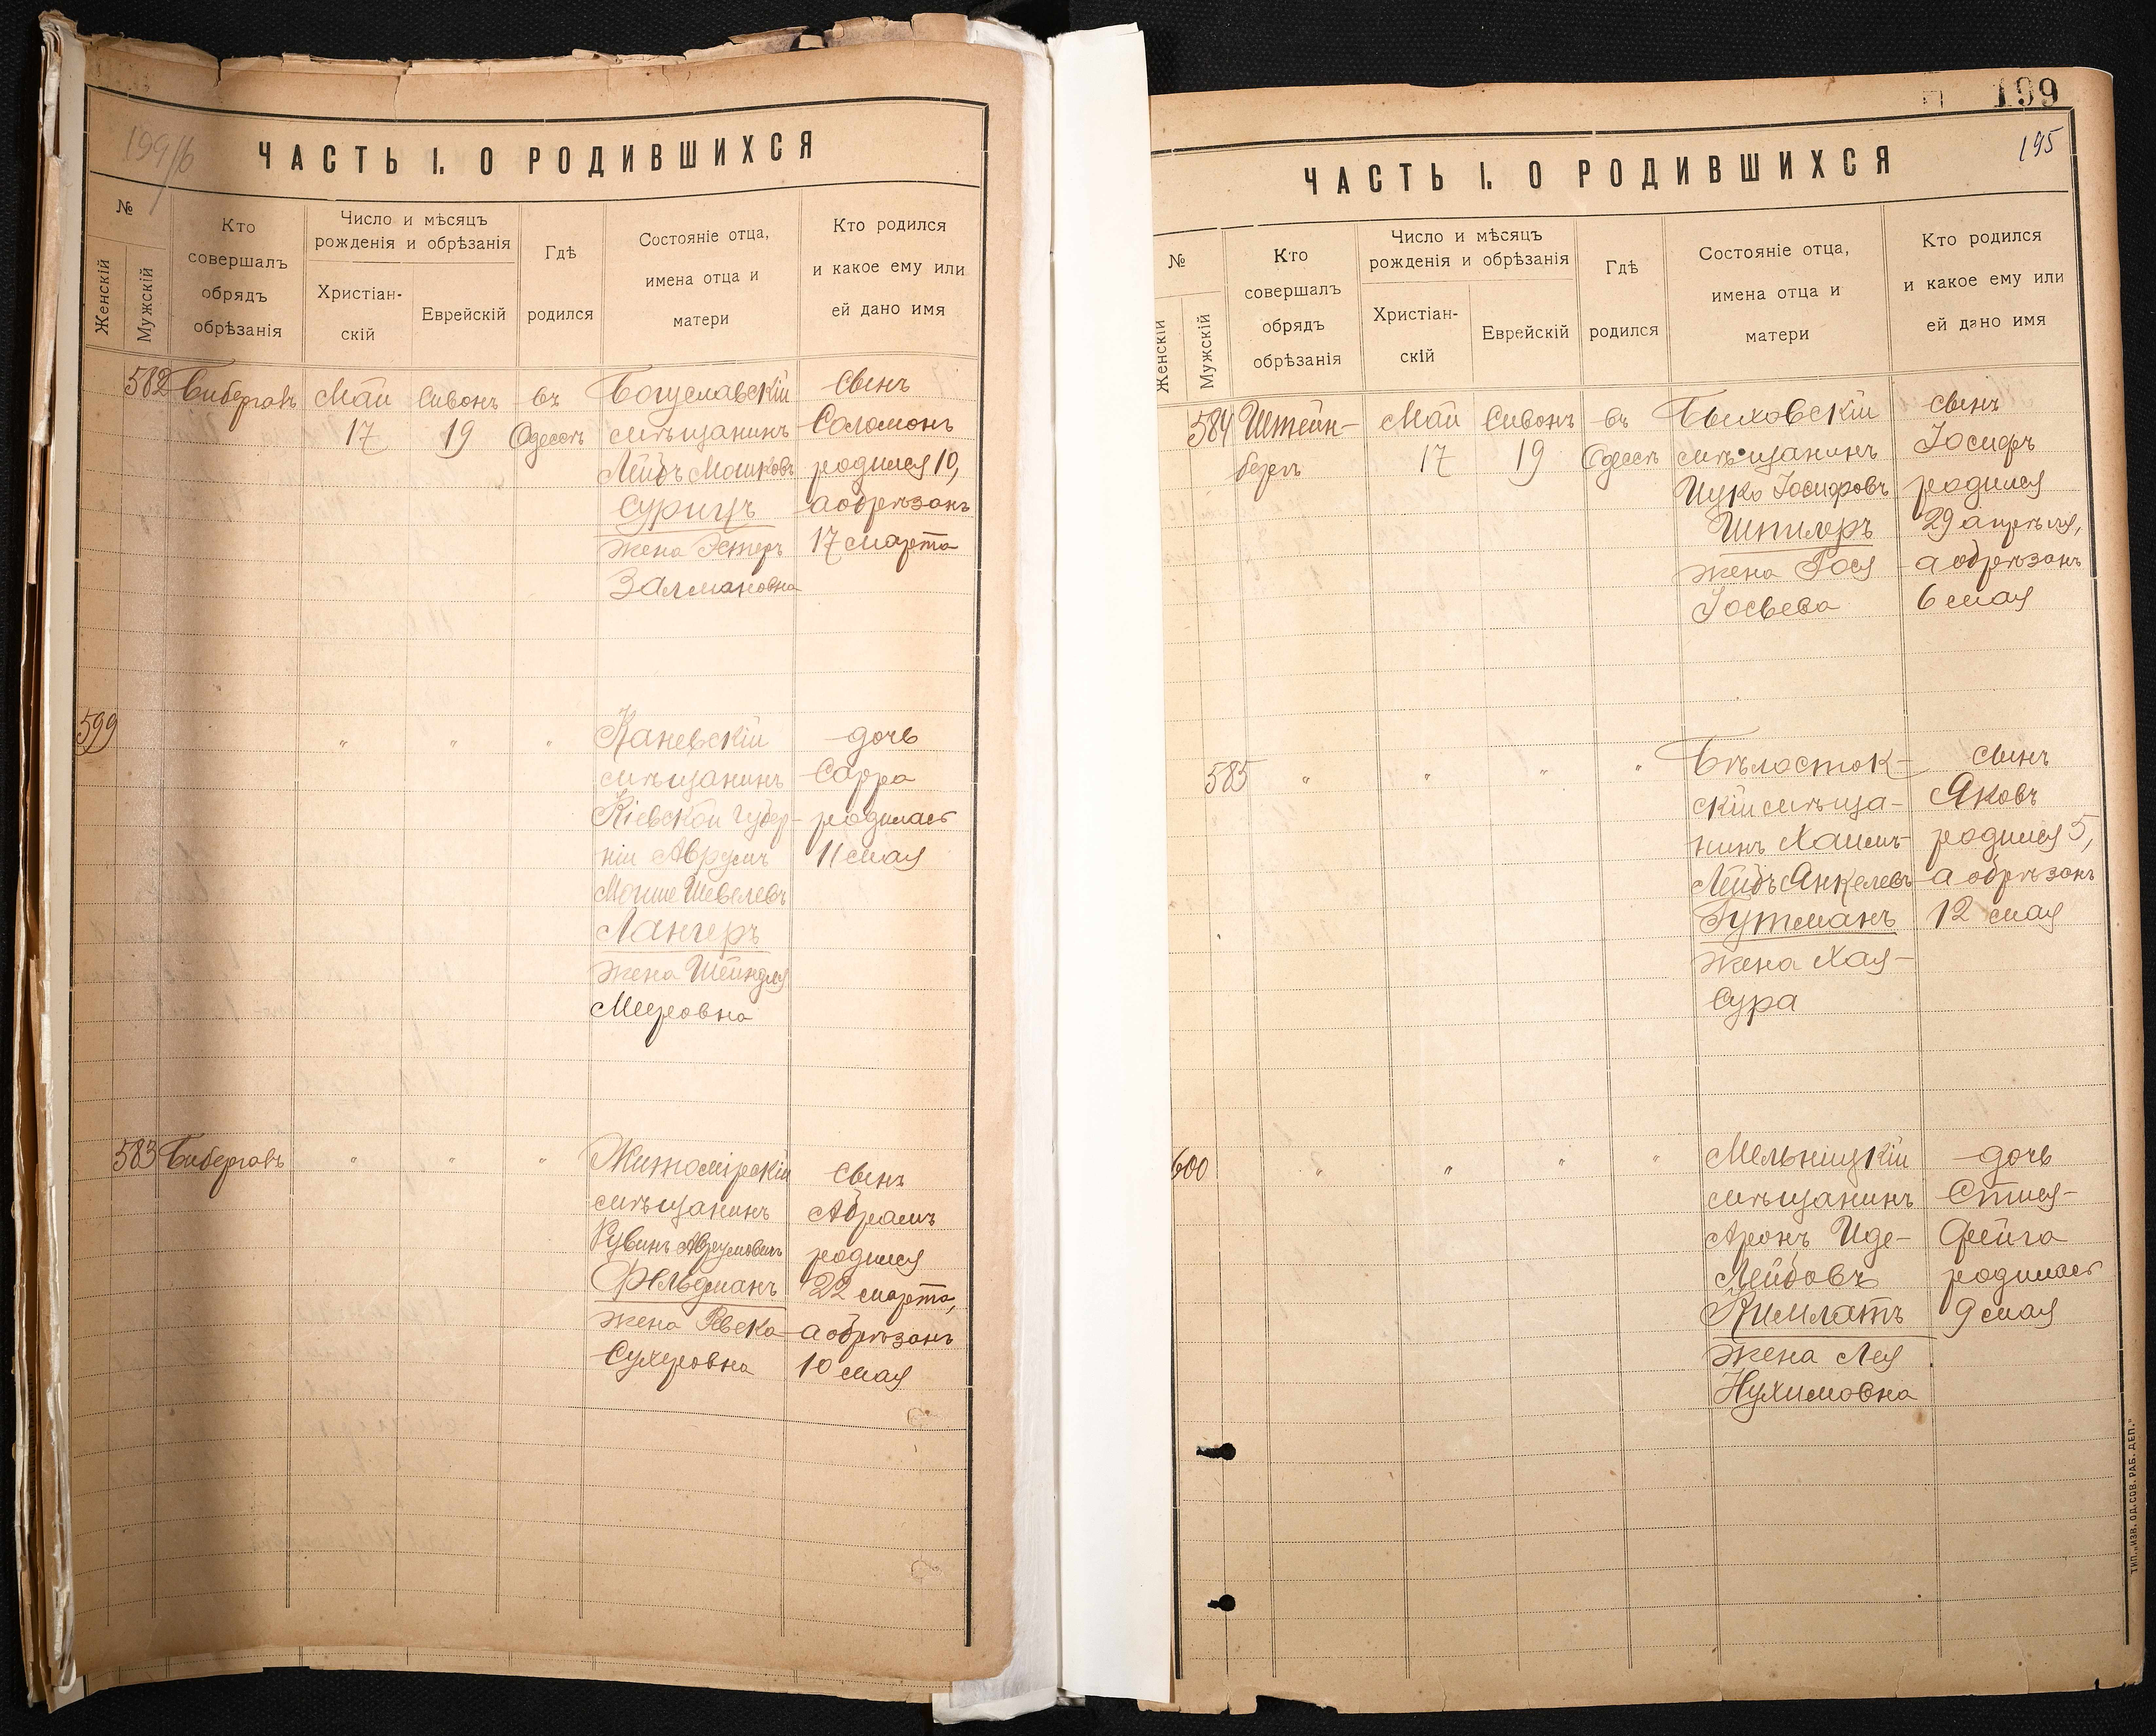 199/б
ЧАСТЬ I. О РОДИВШИХСЯ
№
Женскій
Мужскій
Кто
совершалъ
обрядъ
обрѣзанія
Число и мѣсяцъ
рожденія и обрѣзанія
Христіан-
скій
Еврейскій
Гдѣ
родился
Состояніе отца,
имена отца и
матери
Кто родился
и какое ему или
ей дано имя
582
Бибергалъ
Май
17
Сивонъ
19
въ
Одессѣ
Богуславскій
мѣщанинъ
Лейбъ Мошковъ
Сурицъ
жена Эстеръ
Залмановна
сынъ
Соломонъ
родился 10,
а обрѣзанъ
17 марта
599
"
"
"
Каневскій
мѣщанинъ
Кіевской губер-
ніи Аврумъ
Мошко Шевелевъ
Лангеръ
жена Шейндля
Меуровна
дочь
Сарра
родилась
11 мая
583
Бибергалъ
"
"
"
Житомірскій
мѣщанинъ
Рувинъ Аврумовичъ
Фельдманъ
жена Ревека
Сухеровна
сынъ
Абрамъ
родился
22 марта,
а обрѣзанъ
10 мая
199
195
ЧАСТЬ I. О РОДИВШИХСЯ
№
Женскій
Мужскій
Кто
совершалъ
обрядъ
обрѣзанія
Число и мѣсяцъ
рожденія и обрѣзанія
Христіан-
скій
Еврейскій
Гдѣ
родился
Состояніе отца,
имена отца и
матери
Кто родился
и какое ему или
ей дано имя
584
Штейн-
бергъ
Май
17
Сивонъ
19
въ
Одессѣ
Быховскій
мѣщанинъ
Ицко Іосифовъ
Шпилеръ
жена Рося
Іосьева
сынъ
Іосифъ
родился
29 апрѣля,
а обрѣзанъ
6 мая
585
"
"
"
"
Бѣлосток-
скій мѣща-
нинъ Хаимъ-
Лейбъ Янкелевъ
Гутманъ
жена Хая-
Сура
сынъ
Яковъ
родился 5,
а обрѣзанъ
12 мая
600
"
"
"
"
Мельницкій
мѣщанинъ
Аронъ Иде-
Лейбовъ
Кимлатъ
жена Лея
Нухимовна
дочь
Фейга
родилась
9 мая
ТИП. „ИЗВ. ОД. СОВ. РАБ. ДЕП."